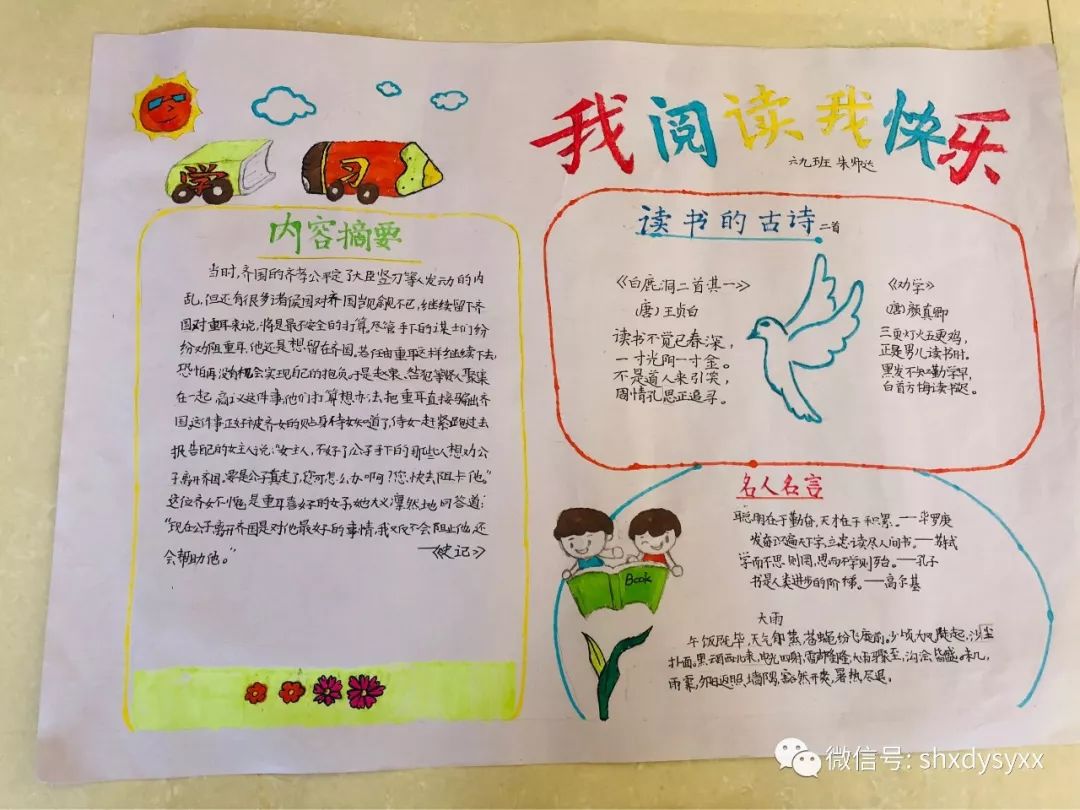 我阅读我快乐
六九班 朱帅达
学 习
内容摘要
当时,齐国的齐孝公平定了大臣竖刁等人发动的内
乱,但还有很多诸侯国对齐国觊觎不已,继续留下齐
国对重耳来说,将是最不安全的打算。尽管手下的谋士们纷
纷劝阻重耳,他还是想留在齐国。若任由重耳这样继续下去,
恐怕再没有机会实现自己的抱负。于是赵衰、咎犯等贤人聚集
在一起,商议这件事,他们打算想办法把重耳直接骗出齐
国,这件事正好被齐女的贴身侍女知道了,侍女一赶紧跑过去
报告自己的女主人说:“女主人,不好了公子手下的那些人想劝公
子离开齐国。要是公子真走了,您可怎么办啊?您快去阻止他。”
这位齐女不愧是重耳喜好的女子,她大义凛然地回答道:
“现在公子离开齐国是对他最好的事情,我不仅不会阻止他,还
会帮助他。”
——《史记》
读书的古诗二首
《白鹿洞二首其一》
(唐)王贞白
读书不觉已春深,
一寸光阴一寸金。
不是道人来引笑,
周情孔思正追寻。
《劝学》
(唐)颜真卿
三更灯火五更鸡,
正是男儿读书时。
黑发不知勤学早,
白首方悔读书迟。
名人名言
聪明在于勤奋,天才在于积累。——华罗庚
发奋识遍天下字,立志读尽人间书。——苏轼
学而不思则罔,思而不学则殆。——孔子
书是人类进步的阶梯。——高尔基
Book
大雨
午饭既毕,天气郁蒸,苍蝇纷飞庭前。少顷大风陡起,沙尘
扑面。黑云自西北来,电光四射,雷声隆隆,大雨骤至,沟浍皆盛。未几,
雨霁,夕阳返照墙隅,豁然开爽,暑热尽退。
微信号: shxdysyxx